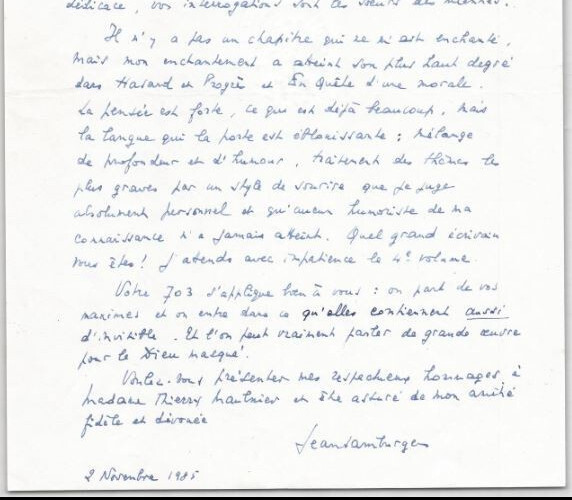 dédicace, vos interrogations sont les sœurs des miennes.
Il n'y a pas un chapitre qui ne m'ait enchanté,
mais mon enchantement a atteint son plus haut degré
dans Hasard et Progrès et En Quête d'une morale.
La pensée est forte, ce qui est déjà beaucoup, mais
la langue qui la porte est éblouissante : mélange
de profondeur et d'humour, traitement des thèmes les
plus graves par un style de sourire que je juge
absolument personnel et qu'aucun humoriste de ma
connaissance n'a jamais atteint. Quel grand écrivain
vous êtes ! J'attends avec impatience le 4e volume.
Votre 703 s'applique bien à vous : on part de vos
maximes et on entre dans ce qu'elles contiennent aussi
d'invisible. Et l'on peut vraiment parler de grande œuvre
pour le Dieu masqué.
Voulez-vous présenter mes respectueux hommages à
Madame Thierry Maulnier et être assuré de mon amitié
fidèle et dévouée
Jean Hamburger
2 Novembre 1985